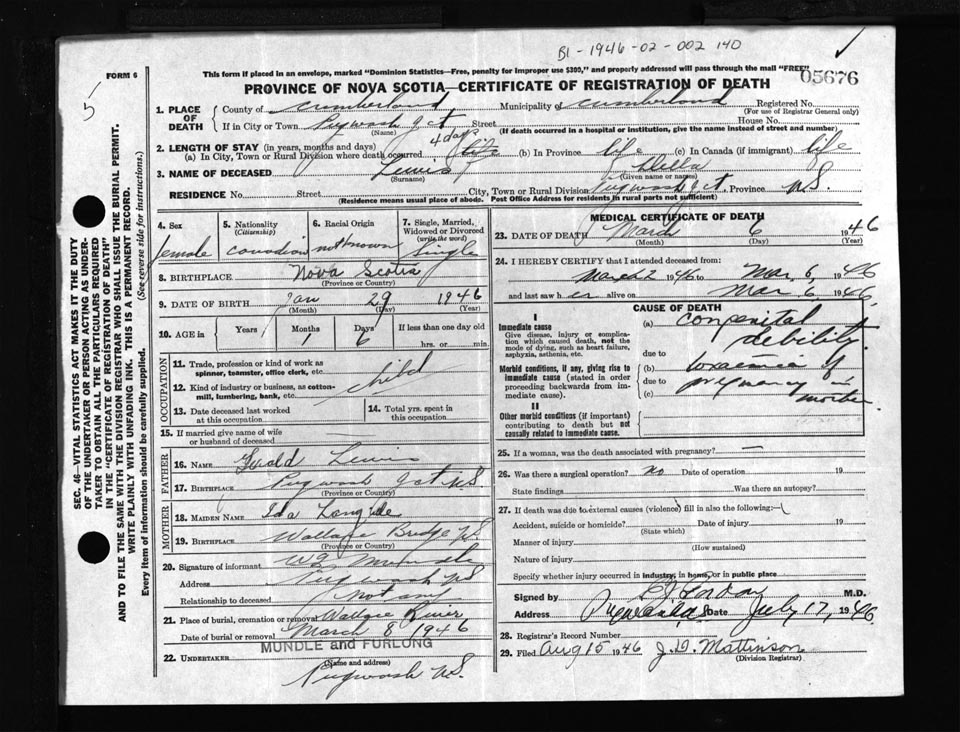 B1-1946-02-002140
FORM 6
This form if placed in an envelope, marked "Dominion Statistics—Free, penalty for improper use $300," and properly addressed will pass through the mail "FREE"
05676
5
PROVINCE OF NOVA SCOTIA—CERTIFICATE OF REGISTRATION OF DEATH
1. PLACE OF DEATH
County of Cumberland Municipality of Cumberland Registered No.
(For use of Registrar General only)
If in City or Town Pugwash Jct Street House No.
(Name) (If death occurred in a hospital or institution, give the name instead of street and number)
2. LENGTH OF STAY (in years, months and days) 4 days
(a) In City, Town or Rural Division where death occurred life (b) In Province life (c) In Canada (if immigrant) life
3. NAME OF DECEASED Lewis Della
(Surname) (Given name or names)
RESIDENCE No. Street City, Town or Rural Division Pugwash Jct, Province N.S.
(Residence means usual place of abode. Post Office Address for residents in rural parts not sufficient)
SEC. 46—VITAL STATISTICS ACT MAKES IT THE DUTY
OF THE UNDERTAKER OR PERSON ACTING AS UNDER-
TAKER TO OBTAIN ALL THE PARTICULARS REQUIRED
IN THE "CERTIFICATE OF REGISTRATION OF DEATH"
AND TO FILE THE SAME WITH THE DIVISION REGISTRAR WHO SHALL ISSUE THE BURIAL PERMIT.
WRITE PLAINLY WITH UNFADING INK. THIS IS A PERMANENT RECORD.
Every item of information should be carefully supplied. (See reverse side for instructions.)
4. Sex
female
5. Nationality
(Citizenship)
canadian
6. Racial Origin
not known
7. Single, Married,
Widowed or Divorced
(write the word)
Single
8. BIRTHPLACE Nova Scotia
(Province or Country)
9. DATE OF BIRTH Jan 29 1946
(Month) (Day) (Year)
10. AGE in Years Months Days If less than one day old
1 6 hrs. or min.
OCCUPATION
11. Trade, profession or kind of work as
spinner, teamster, office clerk, etc.
child
12. Kind of industry or business, as cotton-
mill, lumbering, bank, etc.
13. Date deceased last worked
at this occupation
14. Total yrs. spent in
this occupation
15. If married give name of wife
or husband of deceased
FATHER
16. NAME Lewis
17. BIRTHPLACE Pugwash Jct N.S.
(Province or Country)
MOTHER
18. MAIDEN NAME Ida
19. BIRTHPLACE Wallace Bridge N.S.
(Province or Country)
20. Signature of informant
Address Pugwash N.S.
Relationship to deceased not any
21. Place of burial, cremation or removal Wallace River
Date of burial or removal March 8 1946
MUNDLE and FURLONG
22. UNDERTAKER
(Name and address)
Pugwash N.S.
MEDICAL CERTIFICATE OF DEATH
23. DATE OF DEATH March 6 1946
(Month) (Day) (Year)
24. I HEREBY CERTIFY that I attended deceased from:
March 2 1946 to Mar. 6, 1946
and last saw her alive on Mar. 6 1946
CAUSE OF DEATH
I
Immediate cause
Give disease, injury or complica-
tion which caused death, not the
mode of dying, such as heart failure,
asphyxia, asthenia, etc.
(a) congenital
debility.
due to
Morbid conditions, if any, giving rise to
immediate cause (stated in order
proceeding backwards from im-
mediate cause).
(b) toxaemia of
due to pregnancy in
(c) mother.
II
Other morbid conditions (if important)
contributing to death but not
causally related to immediate cause.
25. If a woman, was the death associated with pregnancy? —
26. Was there a surgical operation? no Date of operation 19
State findings Was there an autopsy?
27. If death was due to external causes (violence) fill in also the following:—
Accident, suicide or homicide? Date of injury 19
(State which)
Manner of injury
(How sustained)
Nature of injury
Specify whether injury occurred in industry, in home, or in public place
Signed by M.D.
Address Date July 17, 1946
28. Registrar's Record Number
29. Filed Aug 15 1946 J. D. Mattinson
(Division Registrar)